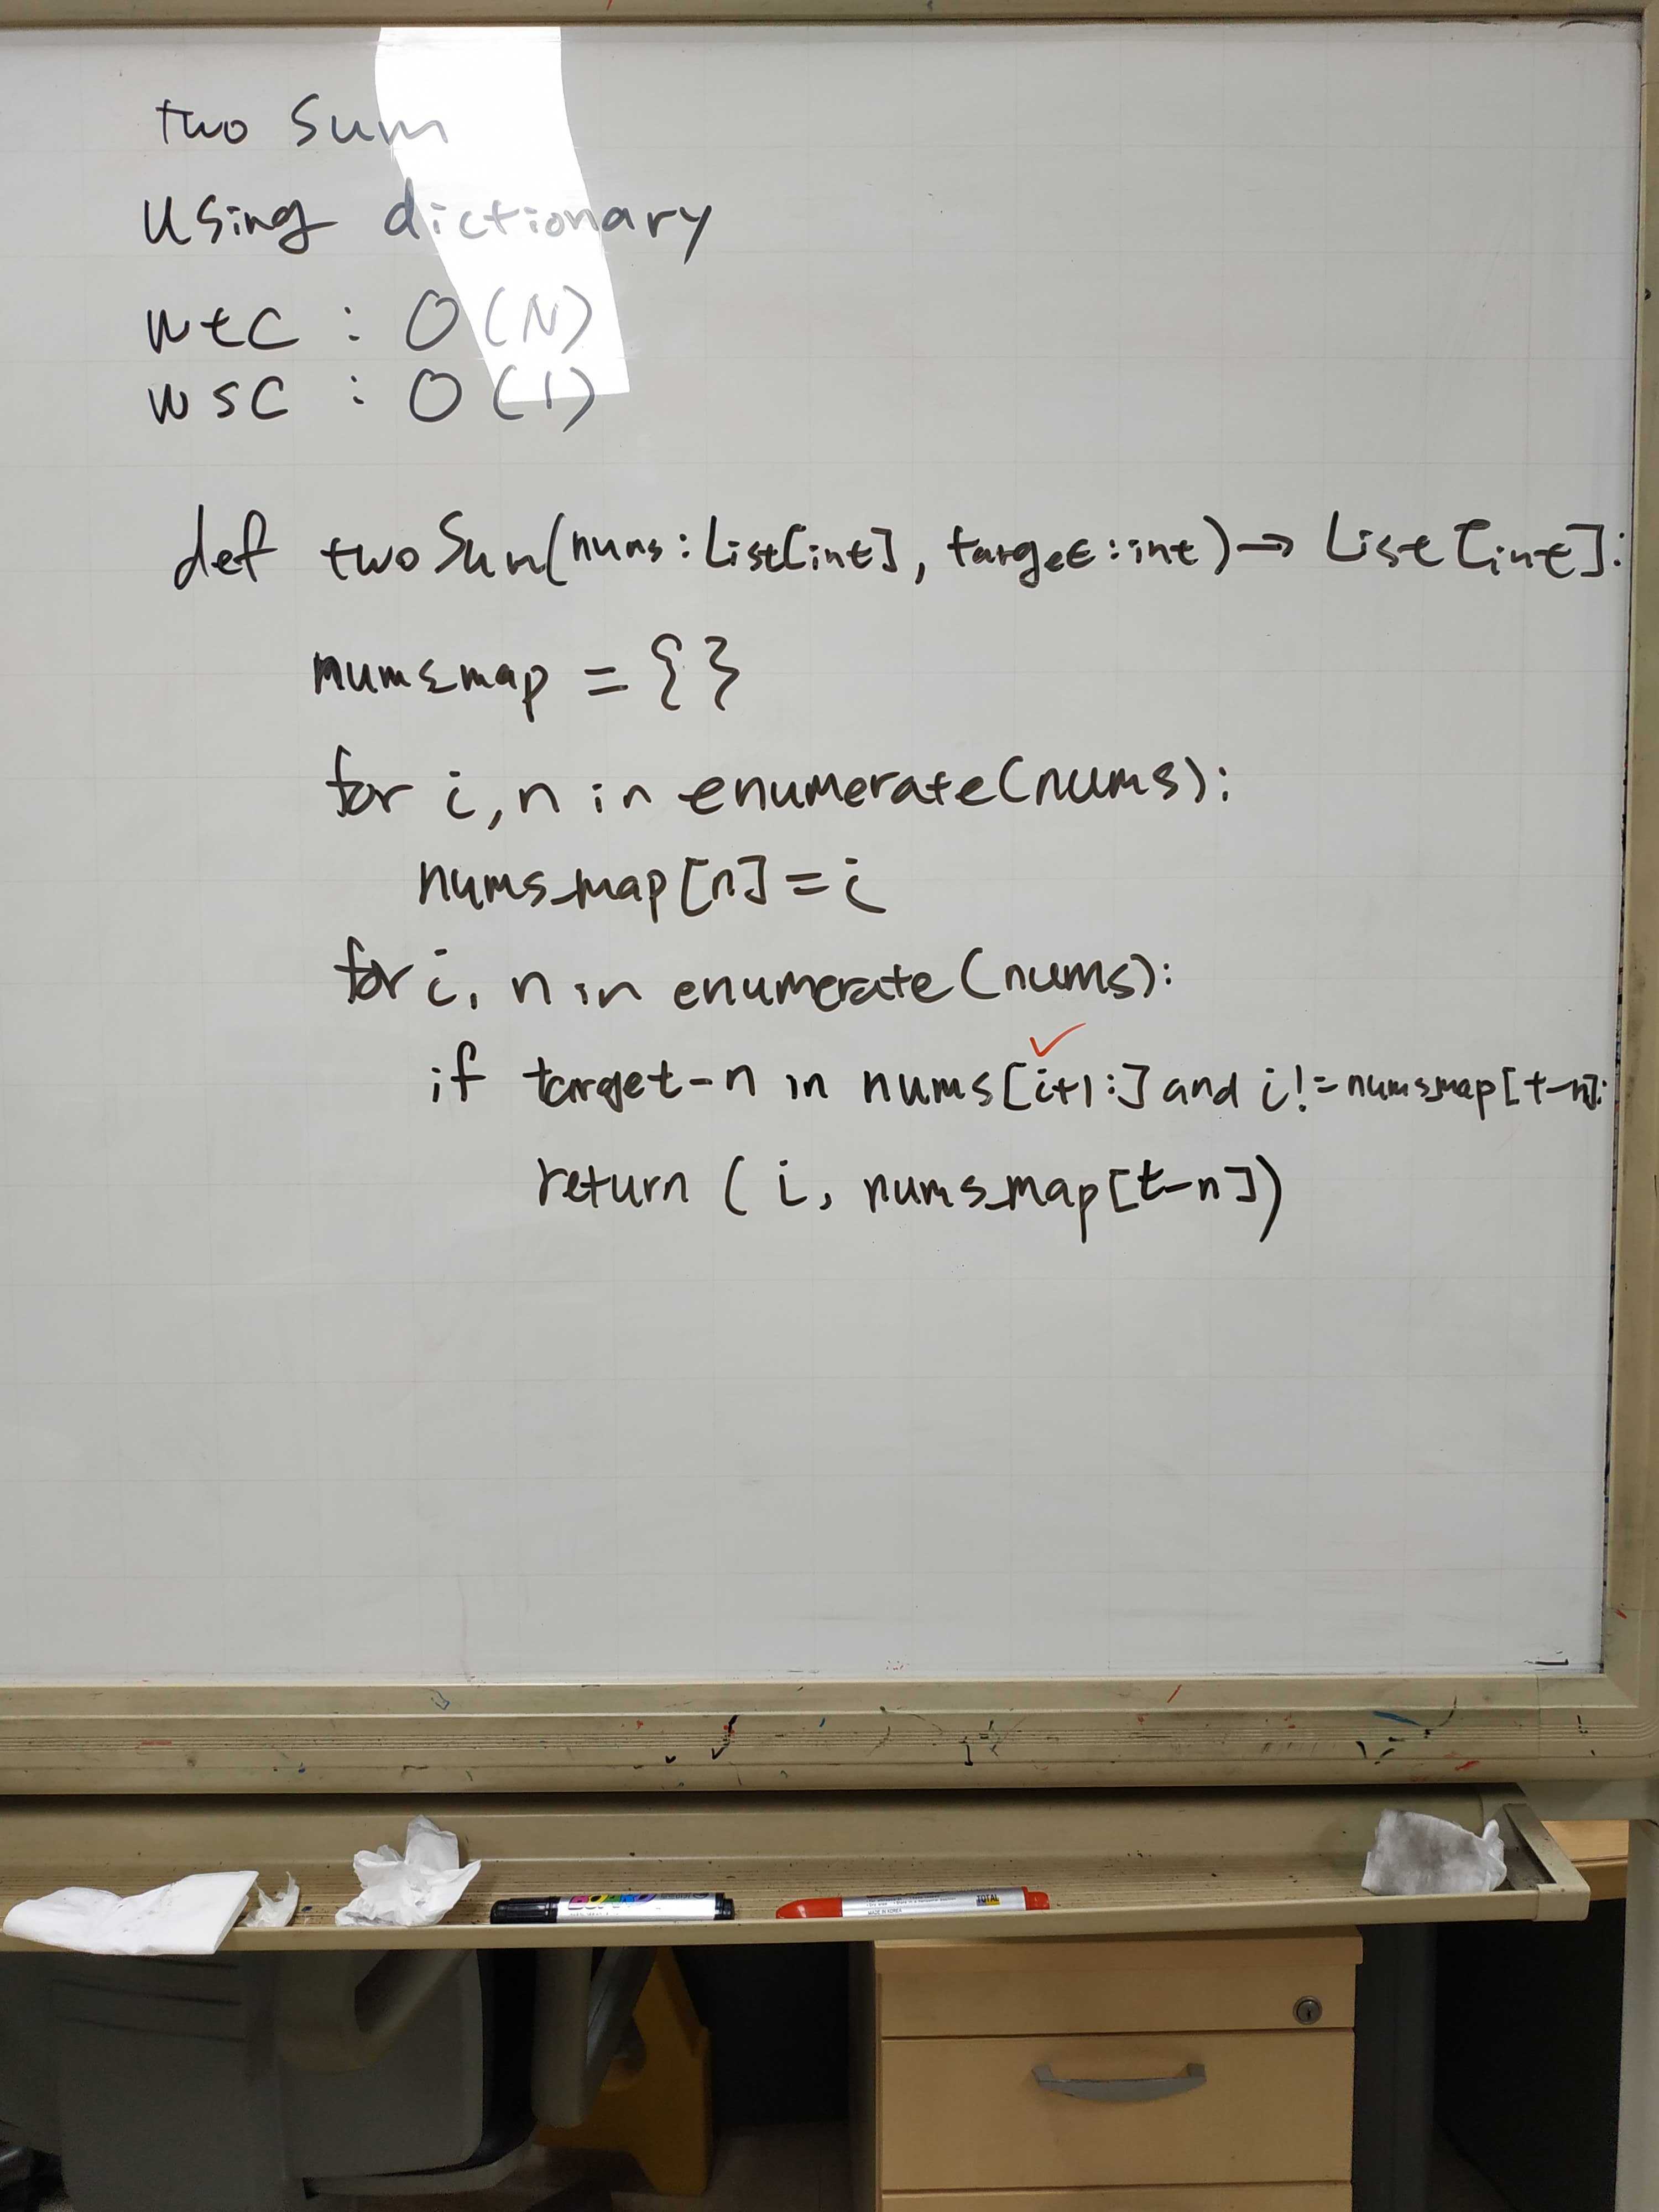 two Sum
using dictionary
wtc : O(N)
wsc : O(1)
def twoSum(nums:List[int], target:int)→ List[int]:
nums_map = {}
for i,n in enumerate(nums):
nums_map[n]=i
for i, n in enumerate(nums):
if target-n in nums[i+1:] and i!=nums_map[t-n]:
return (i, nums_map[t-n])
TOTAL
MADE IN KOREA